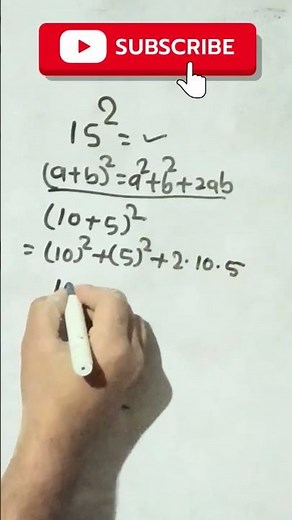 SUBSCRIBE
15² = ✓
(a+b)² = a² + b² + 2ab
(10+5)²
= (10)² + (5)² + 2·10·5
1